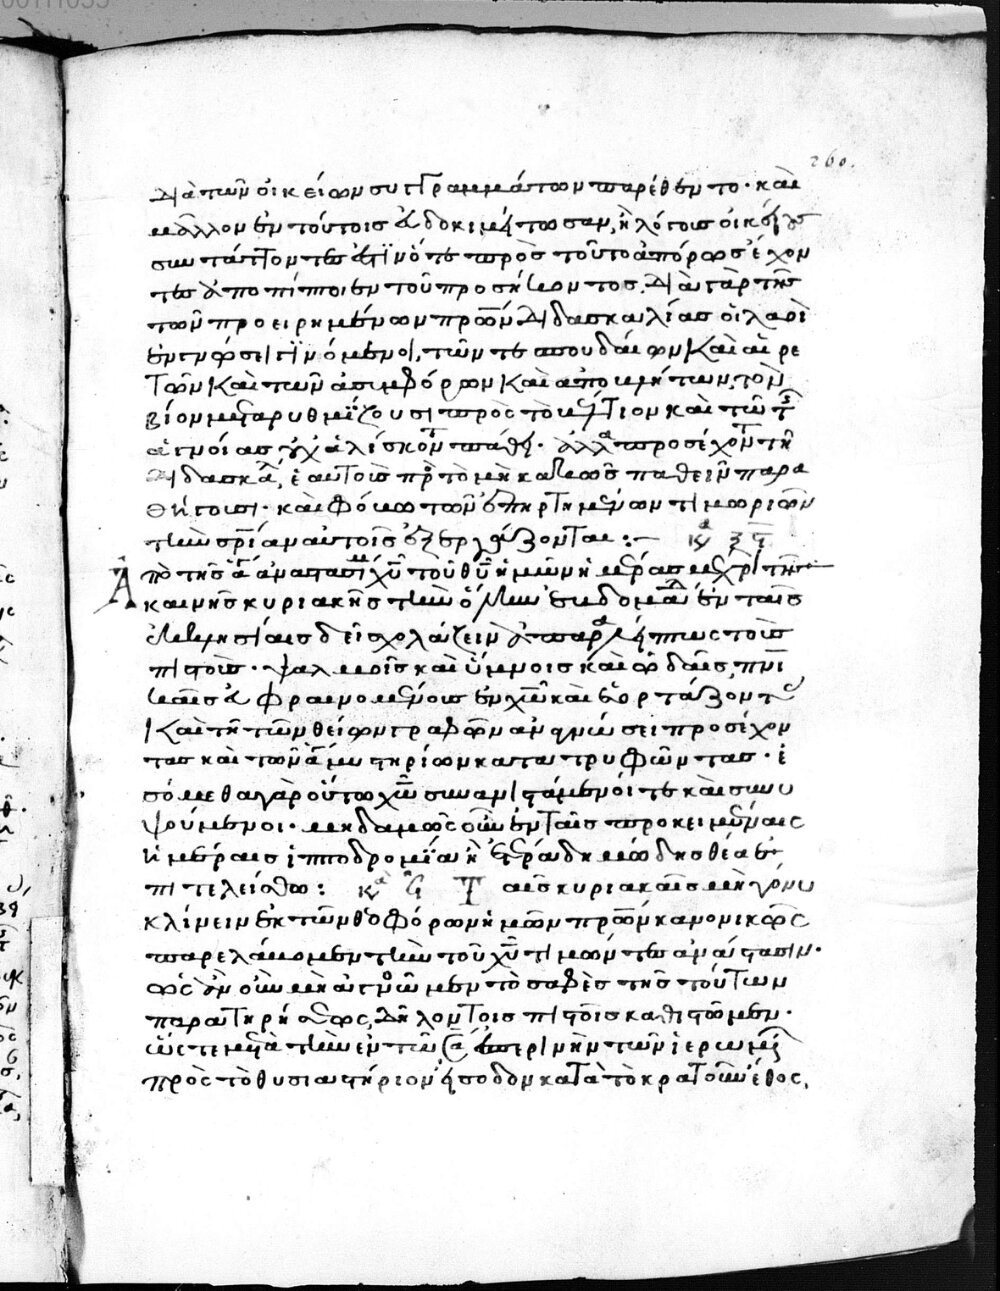 260.
διὰ τῶν οἰκείων συγγραμμάτων παρέθεντο· καὶ
μᾶλλον ἐν τούτοις εὐδοκιμήτωσαν, ἢ λόγους οἰκείους
συντάττοντες ἔστιν ὅτε πρὸς τοῦτο ἀπόρως ἔχον
τες ἀποπίπτοιεν τοῦ προσήκοντος. διὰ γὰρ τῆς
τῶν προειρημένων πρων διδασκαλίας οἱ λαοὶ
ἐν γνώσει γινόμενοι, τῶν τε σπουδαίων καὶ αἱρε
τῶν καὶ τῶν ἀσυμφόρων καὶ ἀποβλήτων, τὸν
βίον μεταρυθμίζουσι πρὸς τὸ βέλτιον καὶ τῷ τῆς
ἀγνοίας οὐχ ἁλίσκονται πάθει· ἀλλὰ προσέχοντες τῇ
διδασκαλίᾳ, ἑαυτοὺς πρὸς τὸ μὴ κακῶς παθεῖν παρα
θήγουσι· καὶ φόβῳ τῶν ἐπηρτημένων τιμωριῶν
τὴν σρίαν αὐτοῖς ἐξεργάζονται :- κα ξϛ
Ἀπὸ τῆς ἁγίας ἀναστασίμου χυ τοῦ θυ ἡμῶν ἡμέρας μέχρι τῆς
καινῆς κυριακῆς τὴν ὅλην ἑβδομάδα ἐν ταῖς
ἐκκλησίαις δεῖ σχολάζειν ἀπαραλείπτως τοὺς
πιστοὺς· ψαλμοῖς καὶ ὕμνοις καὶ ᾠδαῖς πνι
καῖς εὐφραινομένους ἐν χω καὶ ἑορτάζοντας
καὶ τῇ τῶν θείων γραφῶν ἀναγνώσει προσέχον
τας καὶ τῶν ἁγίων μυστηρίων κατατρυφῶντας· ἐ
σόμεθα γὰρ οὕτω χω συνανιστάμενοί τε καὶ συνυ
ψούμενοι· μηδαμῶς οὖν ἐν ταῖς προκειμέναις
ἡμέραις ἱπποδρομία ἢ ἑτέρα δημώδης θέα ἐ
πιτελείσθω : κα Ϟ Ταῖς κυριακαῖς μὴ γόνυ
κλίνειν ἐκ τῶν θεοφόρων ἡμῶν πρων κανονικῶς
παρελάβομεν τὴν τοῦ χυ τιμῶντες ἀνάστασιν·
ὡς ἂν οὖν μὴ ἀγνοῶμεν τὸ σαφὲς τῆς τούτων
παρατηρήσεως, δῆλον τοῖς πιστοῖς καθιστῶμεν·
ὥστε μετὰ τὴν ἐν τῷ σαββάτῳ ἑσπερινὴν τῶν ἱερωμένων
πρὸς τὸ θυσιαστήριον εἴσοδον κατὰ τὸ κρατοῦν ἔθος,